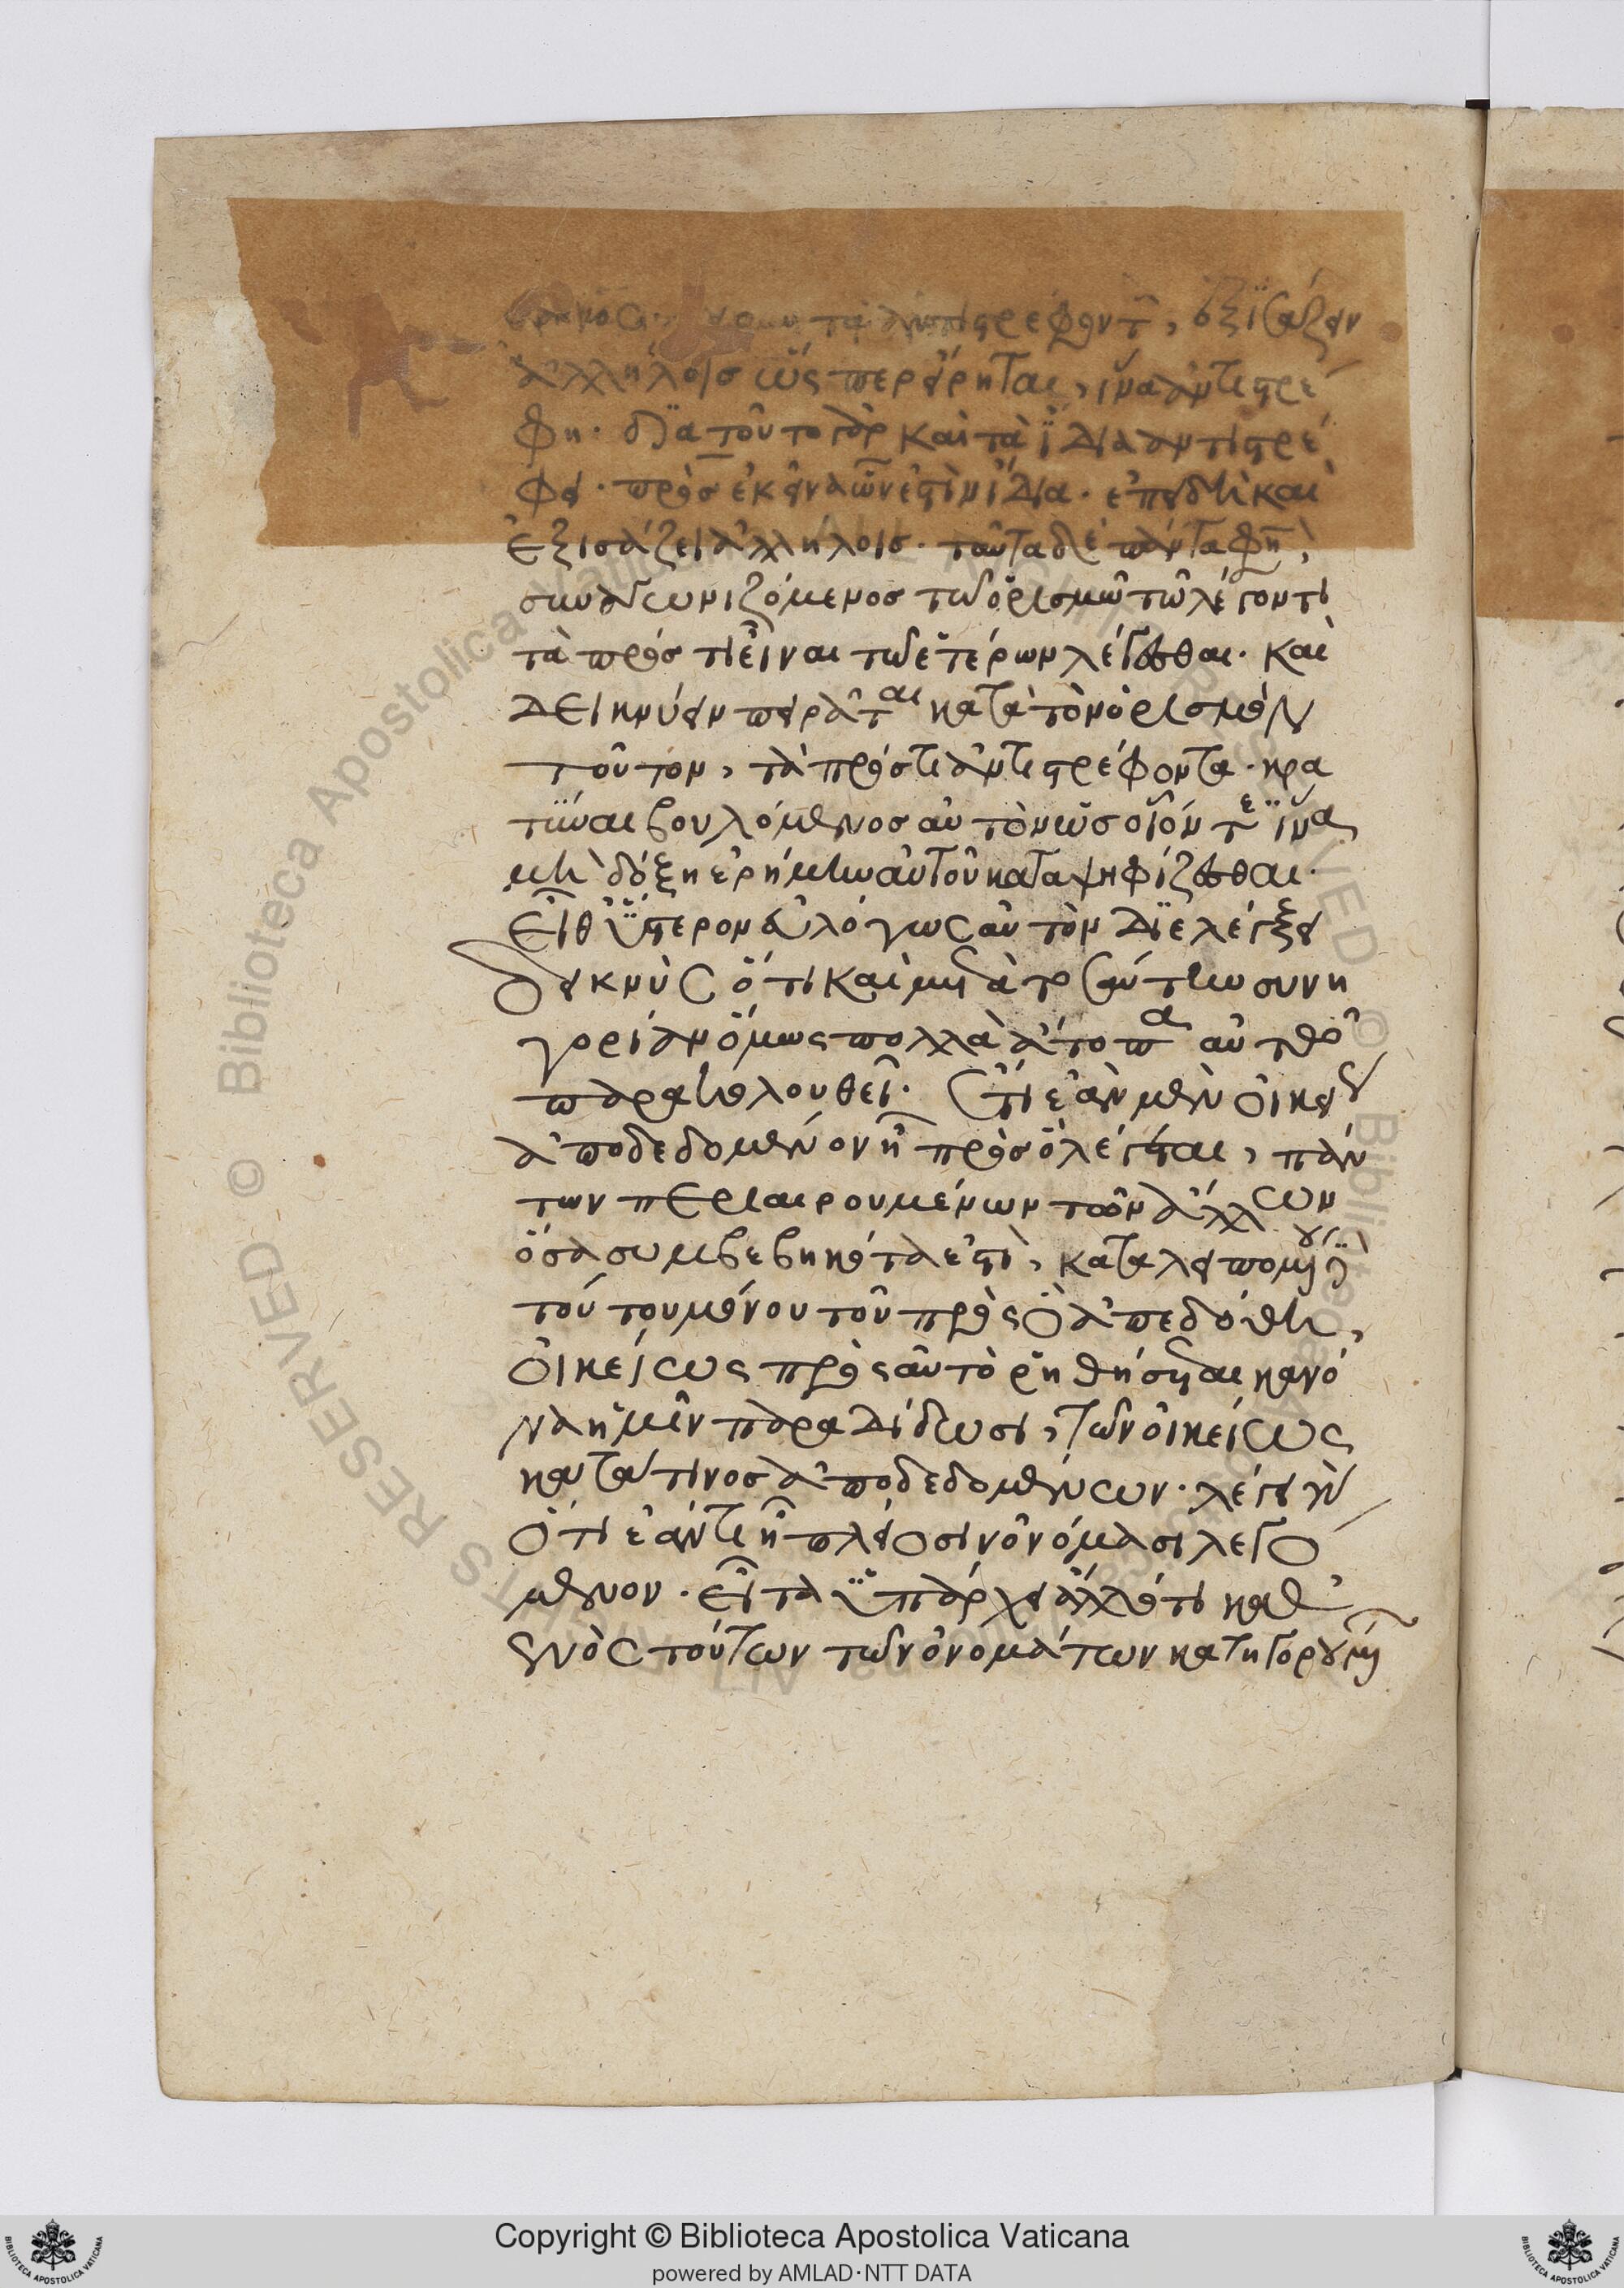 τὰ ἀντιστρέφοντ, ἐξισάζειν
ἀλλήλοις ὥς περ εἴρηται, ἵνα ἀντιστρέ
φη· διὰ τοῦτο γὰρ καὶ τὰ ἴδια ἀντιστρέ
φει· πρὸς ἐκεῖνα ὧν ἐστὶν ἴδια· ἐπειδὴ καὶ
ἐξισάζει ἀλλήλοις· ταῦτα δὲ πάντα φη,
συναγωνιζόμενος τῶ ὁρισμῶ τῶ λέγοντι
τὰ πρός τι εἶναι τῶ ἑτέρων λέγεσθαι· καὶ
δεικνύειν πειρᾶται κατὰ τὸν ὁρισμὸν
τοῦτον, τὰ πρός τι ἀντιστρέφοντα· κρα
τῦναι βουλόμενος αὐτὸν ὡς οἷόν τε ἵνα
μὴ δόξη ἐρήμην αὐτοῦ καταψηφίζεσθαι·
εἶθ ὕστερον εὐλόγως αὐτὸν διελέγξει
δεικνὺς ὅτι καὶ μετὰ τοσαύτην συνη
γορίαν ὅμως πολλὰ ἄτοπα αὐτῶ
παρακολουθεῖ· ἔτι ἐὰν μὲν οἰκεί
ἀποδεδομένον ἦ πρὸς ὃ λέγεται, πάν
των περιαιρουμένων τῶν ἄλλων
ὅσα συμβεβηκότα ἐστὶ, καταλειπομένου
τούτου μόνου τοῦ πρὸς ὃ ἀπεδόθη,
οἰκείως πρὸς αὐτὸ ῥηθήσεται κανό
να ἡμῖν παραδίδωσι, τῶν οἰκείως
κατά τινος ἀποδεδομένων· λέγει γὰρ
ὅτι ἐάν τι ἦ πλείοσιν ὀνόμασι λεγό
μενον· εἶτα ὑπάρχει ἄλλό τι καθ
ἑνὸς τούτων τῶν ὀνομάτων κατηγορούμεν